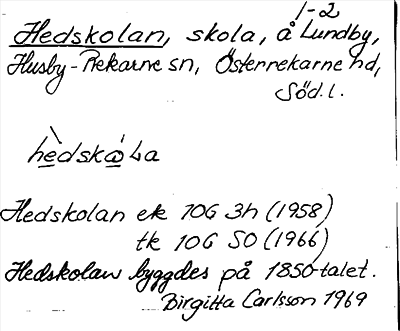 1-2
Hedskolan, skola, å Lundby,
Husby-Rekarne sn, Österrekarne hd,
Söd.l.
hedskola
Hedskolan ek 10G 3h (1958)
tk 10G SO (1966)
Hedskolan byggdes på 1850-talet.
Birgitta Carlsson 1969